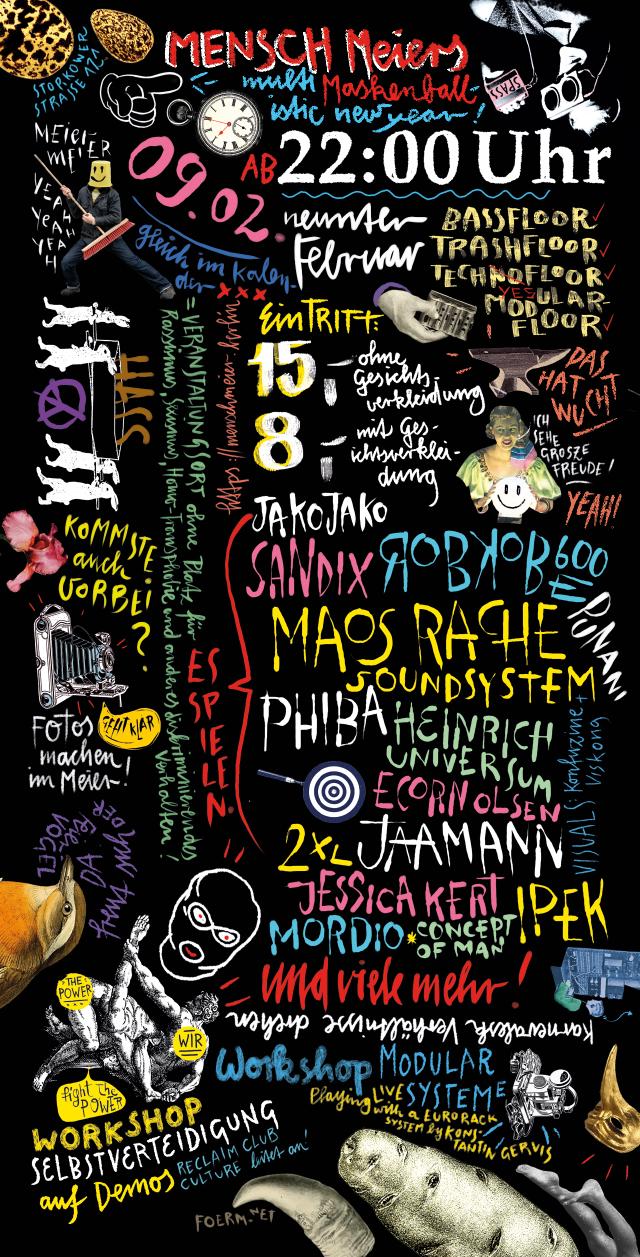 STORKOWER
STRASSE 121
MENSCH Meiers
multi Maskenball-
istic new year!
SPASS
MEIER-
MEIER
YEAH
YEAH
YEA
H
09.02.
AB 22:00 Uhr
gleich im Kalen-
der xxx
neunter
Februar
BASSFLOOR
TRASHFLOOR
TECHNOFLOOR
YES
MODULAR-
FLOOR
Eintritt:
15,- ohne
Gesichts-
verkleidung
8,- mit Ges-
ichtsverklei-
dung
DAS
HAT
WUCHT
ICH
SEHE
GROSZE
FREUDE!
YEAH!
HASS
= VERANSTALTUNGSORT ohne Platz für
Rassismus, Sexismus, Homo-Transphobie und anderes diskriminierendes
Verhalten!
https://menschmeier.berlin
KOMMSTE
auch
VORBEI
?
Fotos
machen
im Meier!
GEHT KLAR
ES
SPIELEN:
JAKOJAKO
SANDIX
ROBKOB600
ELI
PUNANI
MAOS RACHE
SOUNDSYSTEM
PHIBA
HEINRICH
UNIVERSUM
ECORN OLSEN
VISUALS Konfuzine +
Viskong
2XL JAAMANN
JESSICA KERT
IPEK
MORDIO * CONCEPT
OF MAN
und viele mehr!
Karnevalesk Verhältnisse drehen
DA
freut
sich DER
VOGEL
THE
POWER
WIR
fight the
POWER
WORKSHOP
SELBSTVERTEIDIGUNG
auf Demos
RECLAIM CLUB
CULTURE
Workshop MODULAR
SYSTEME
Playing LIVE
with a EURORACK
SYSTEM by KONS-
TANTIN GERVIS
FOERM.NET